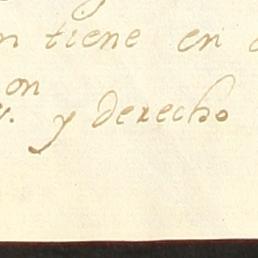 n tiene en
on
v. y derecho